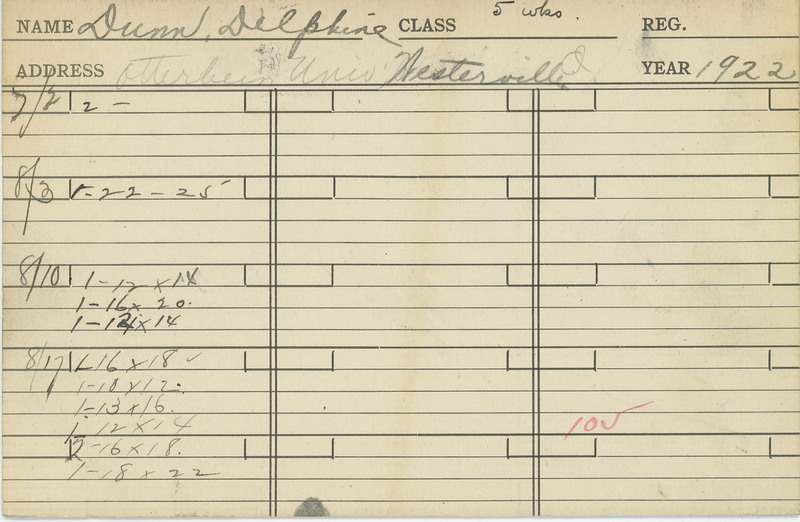 NAME Dunn, Delphine CLASS 5 wks. REG.
ADDRESS Otterbein Univ Westerville O YEAR 1922
2 -
8/3 1-22-25
8/10 1-12 x 14
1-16 x 20.
1-12 x 14
8/17 1-16 x 18 ✓
1-10 x 12.
1-13 x 16.
1-12 x 14
105
2-16 x 18.
1-18 x 22